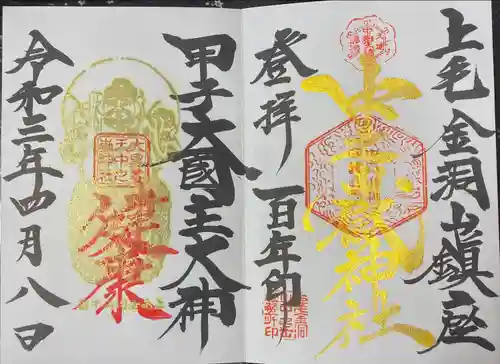 上毛金洞山鎮座
中之嶽神社
登拝
百年印
甲子大國主大神
令和三年四月八日